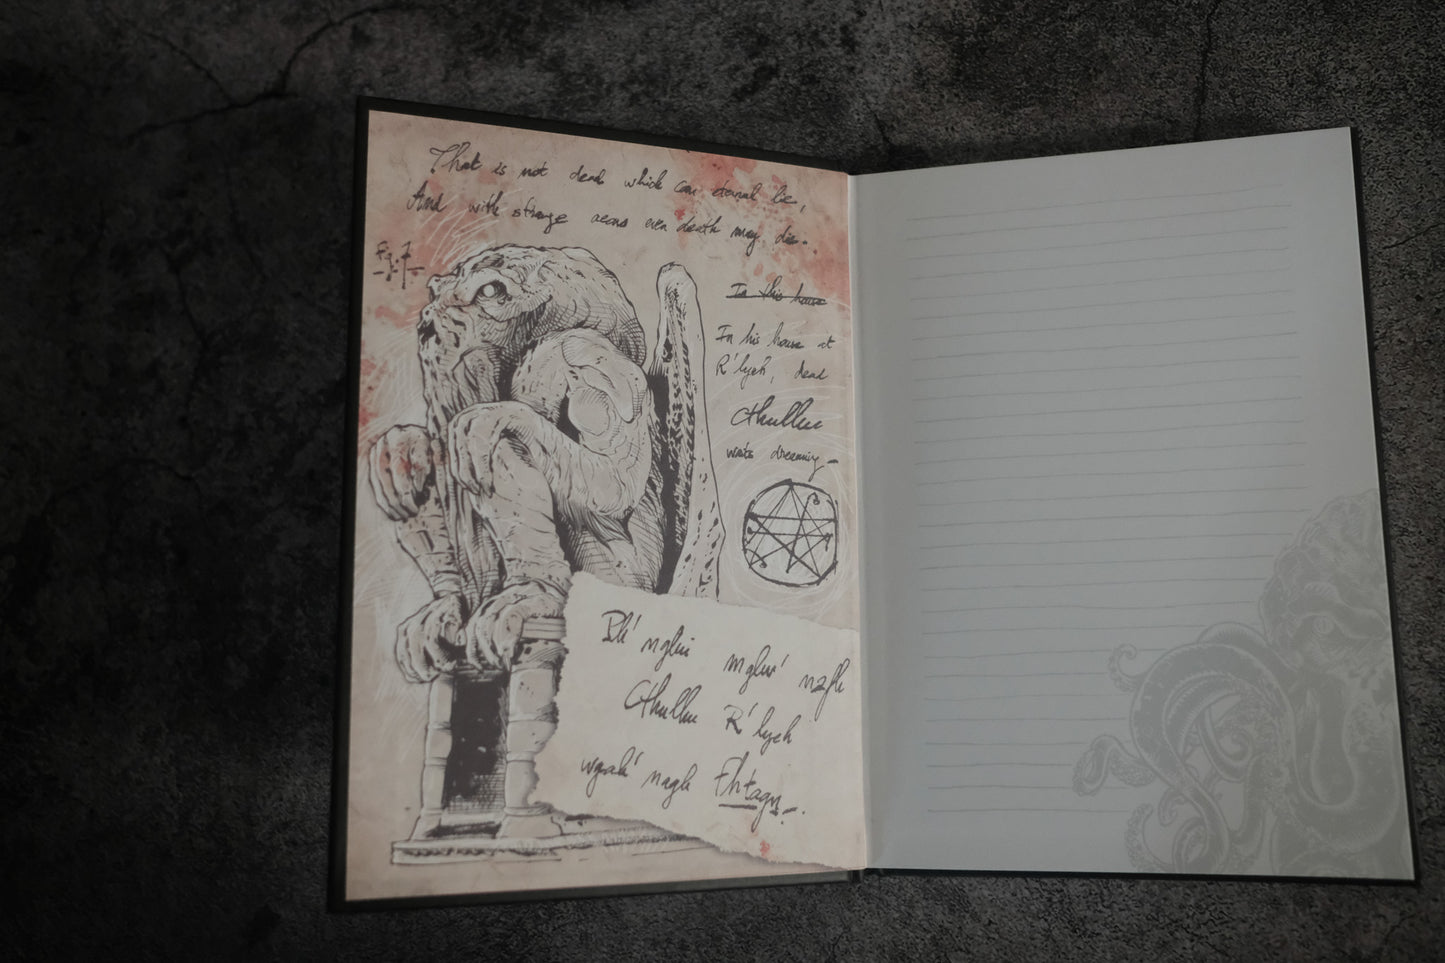 That is not dead which can eternal lie,
And with strange aeons even death may die..
Fig. 7
In this house
In his house at
R'lyeh, dead
Cthulhu
waits dreaming
Ph' nglui mglw' nafh
Cthulhu R'lyeh
wgah' nagl Fhtagn